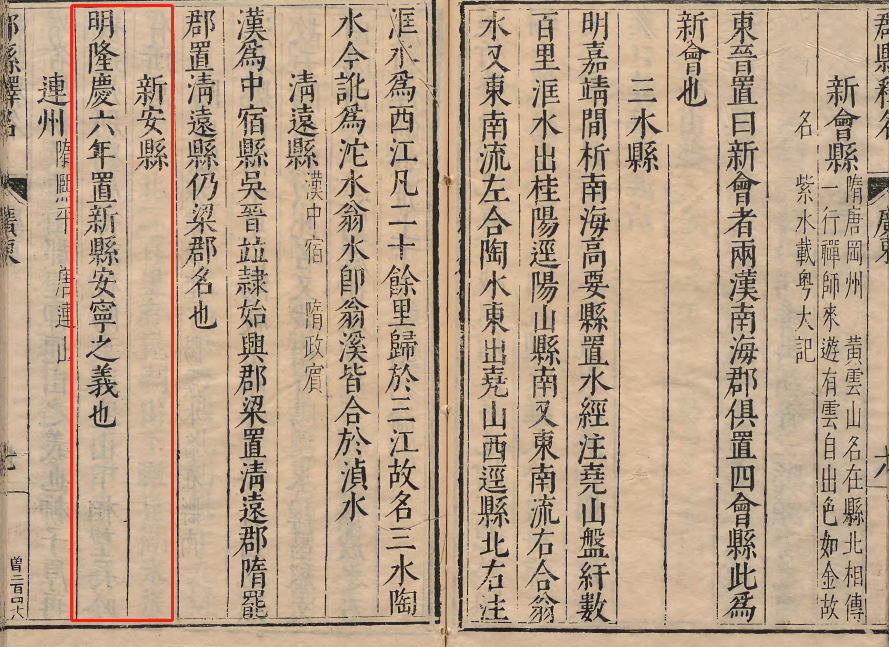 郡縣釋名 廣東 六
新會縣
隋唐岡州 黃雲山名在縣北相傳
一行禪師來遊有雲自出色如金故
名 紫水載粵大記
東晉置曰新會者兩漢南海郡俱置四會縣此為
新會也
三水縣
明嘉靖間析南海高要縣置水經注堯山盤紆數
百里洭水出桂陽逕陽山縣南又東南流右合翁
水又東南流左合陶水東出堯山西逕縣北右注
洭水為西江凡二十餘里歸於三江故名三水陶
水今訛為沱水翁水卽翁溪皆合於湞水
清遠縣 漢中宿 隋政賓
漢為中宿縣吳晉竝隸始興郡梁置清遠郡隋罷
郡置清遠縣仍梁郡名也
新安縣
明隆慶六年置新縣安寧之義也
連州 隋熙平 唐連山
郡縣釋名 廣東 七